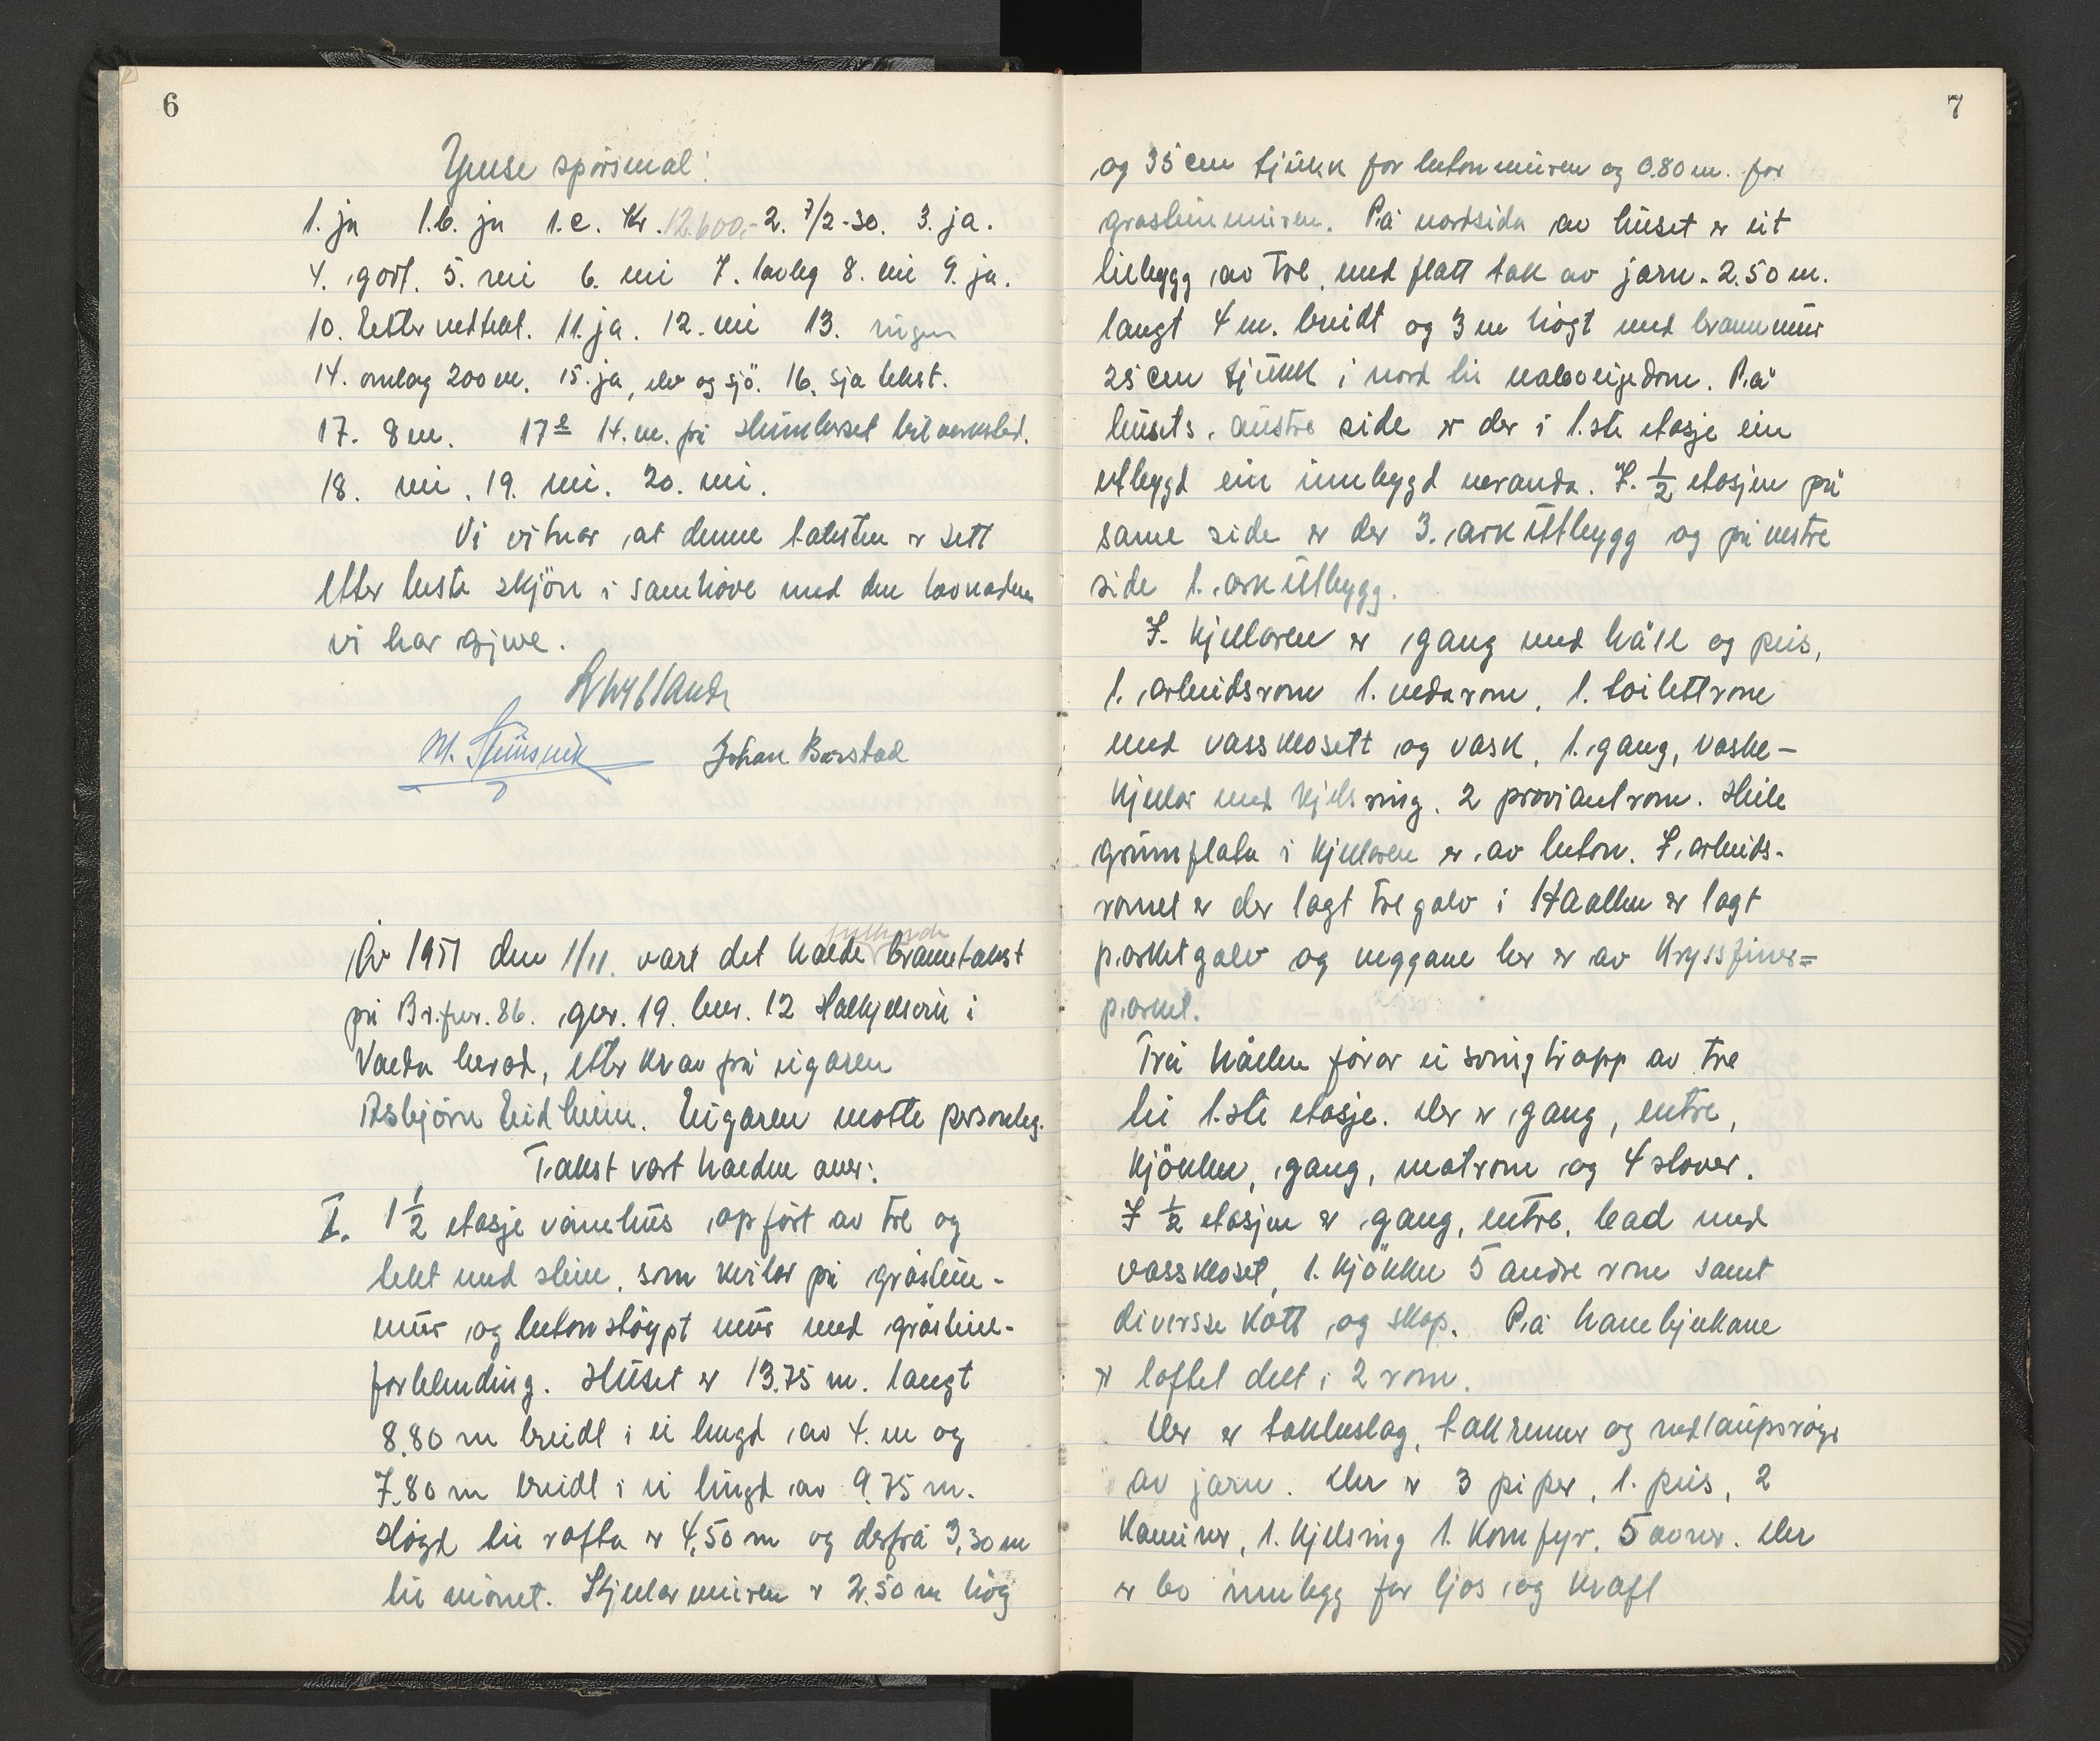 6
Ymse spörsmal:
1. ja 1.b. ja 1.c. Kr. 12.600,- 2. 7/2-30. 3. ja.
4. godt. 5. nei 6. nei 7. lovleg 8. nei 9. ja.
10. Etter vedtekt. 11. ja. 12. nei 13. ingen
14. omlag 200 m. 15. ja, elv og sjö. 16. sja tekst.
17. 8 m. 17a 14. m. på bilverksted.
18. nei. 19. nei. 20. nei.
Vi vitnar at denne taksten er sett
etter beste skjön i samhöve med den lovnaden
vi har gjeve.
Johan Barstad
År 1951 den 1/11. vart det halde branntakst
på Br.fnr. 86. gnr. 19. bnr. 12 i
Volda herad, etter krav på eigaren
Asbjörn Eidheim. Eigaren møtte personleg.
Takst vart halden over:
I. 1 1/2 etasje vånehus opfört av tre og
tekt med stein, som kviler på gråstein-
mur og betonstöypt mur med gråstein-
forblending. Huset er 13.75 m. langt
8.80 m breidt i ei lengd av 4. m og
7.80 m breidt i ei lengd av 9.75 m.
Högd til rafta er 4,50 m og derfrå 3,30 m
til mönet. Kjellarmuren er 2.50 m hög
7
og 35 cm tjukk for betonmuren og 0.80 m. for
grasteinmuren. På nordsida av huset er eit
tilbygg av tre, med flatt tak av jarn. 2.50 m.
langt 4 m. breidt og 3 m högt med brannmur
25 cm tjukk i nord til naboeigedom. På
husets austre side er der i 1.ste etasje ein
utbygd ein innbygd veranda. I 1/2 etasjen på
same side er der 3. ark utbygg og på vestre
side 1. ark utbygg.
I kjellaren er gang med hall og peis,
1. arbeidsrom 1. vedarom, 1. toilettrom
med vassklosett og vask, 1. gang, vaske-
kjellar med kjelsring. 2 proviantrom. Heile
grunnflata i kjellaren er av beton. I arbeids-
romet er der lagt tregolv i Haallen er lagt
parketgolv og veggane her er av Kryssfiner=
parket.
Frå hållen förer ei svingtrapp av tre
til 1.ste etasje. Der er gang, entre,
kjökken, gang, matrom og 4 stover.
I 1/2 etasjen er gang, entre, bad med
vasskloset, 1. kjökken 5 andre rom samt
diversse kott og skap. På hanebjelkane
er loftet delt i 2 rom.
Der er takbeslag, takrenner og nedlaupsröyr
av jarn. Der er 3 piper, 1. peis, 2
kaminer, 1. kjelsring 1. komfyr. 5 ovner. Der
er innlegg for ljos og kraft